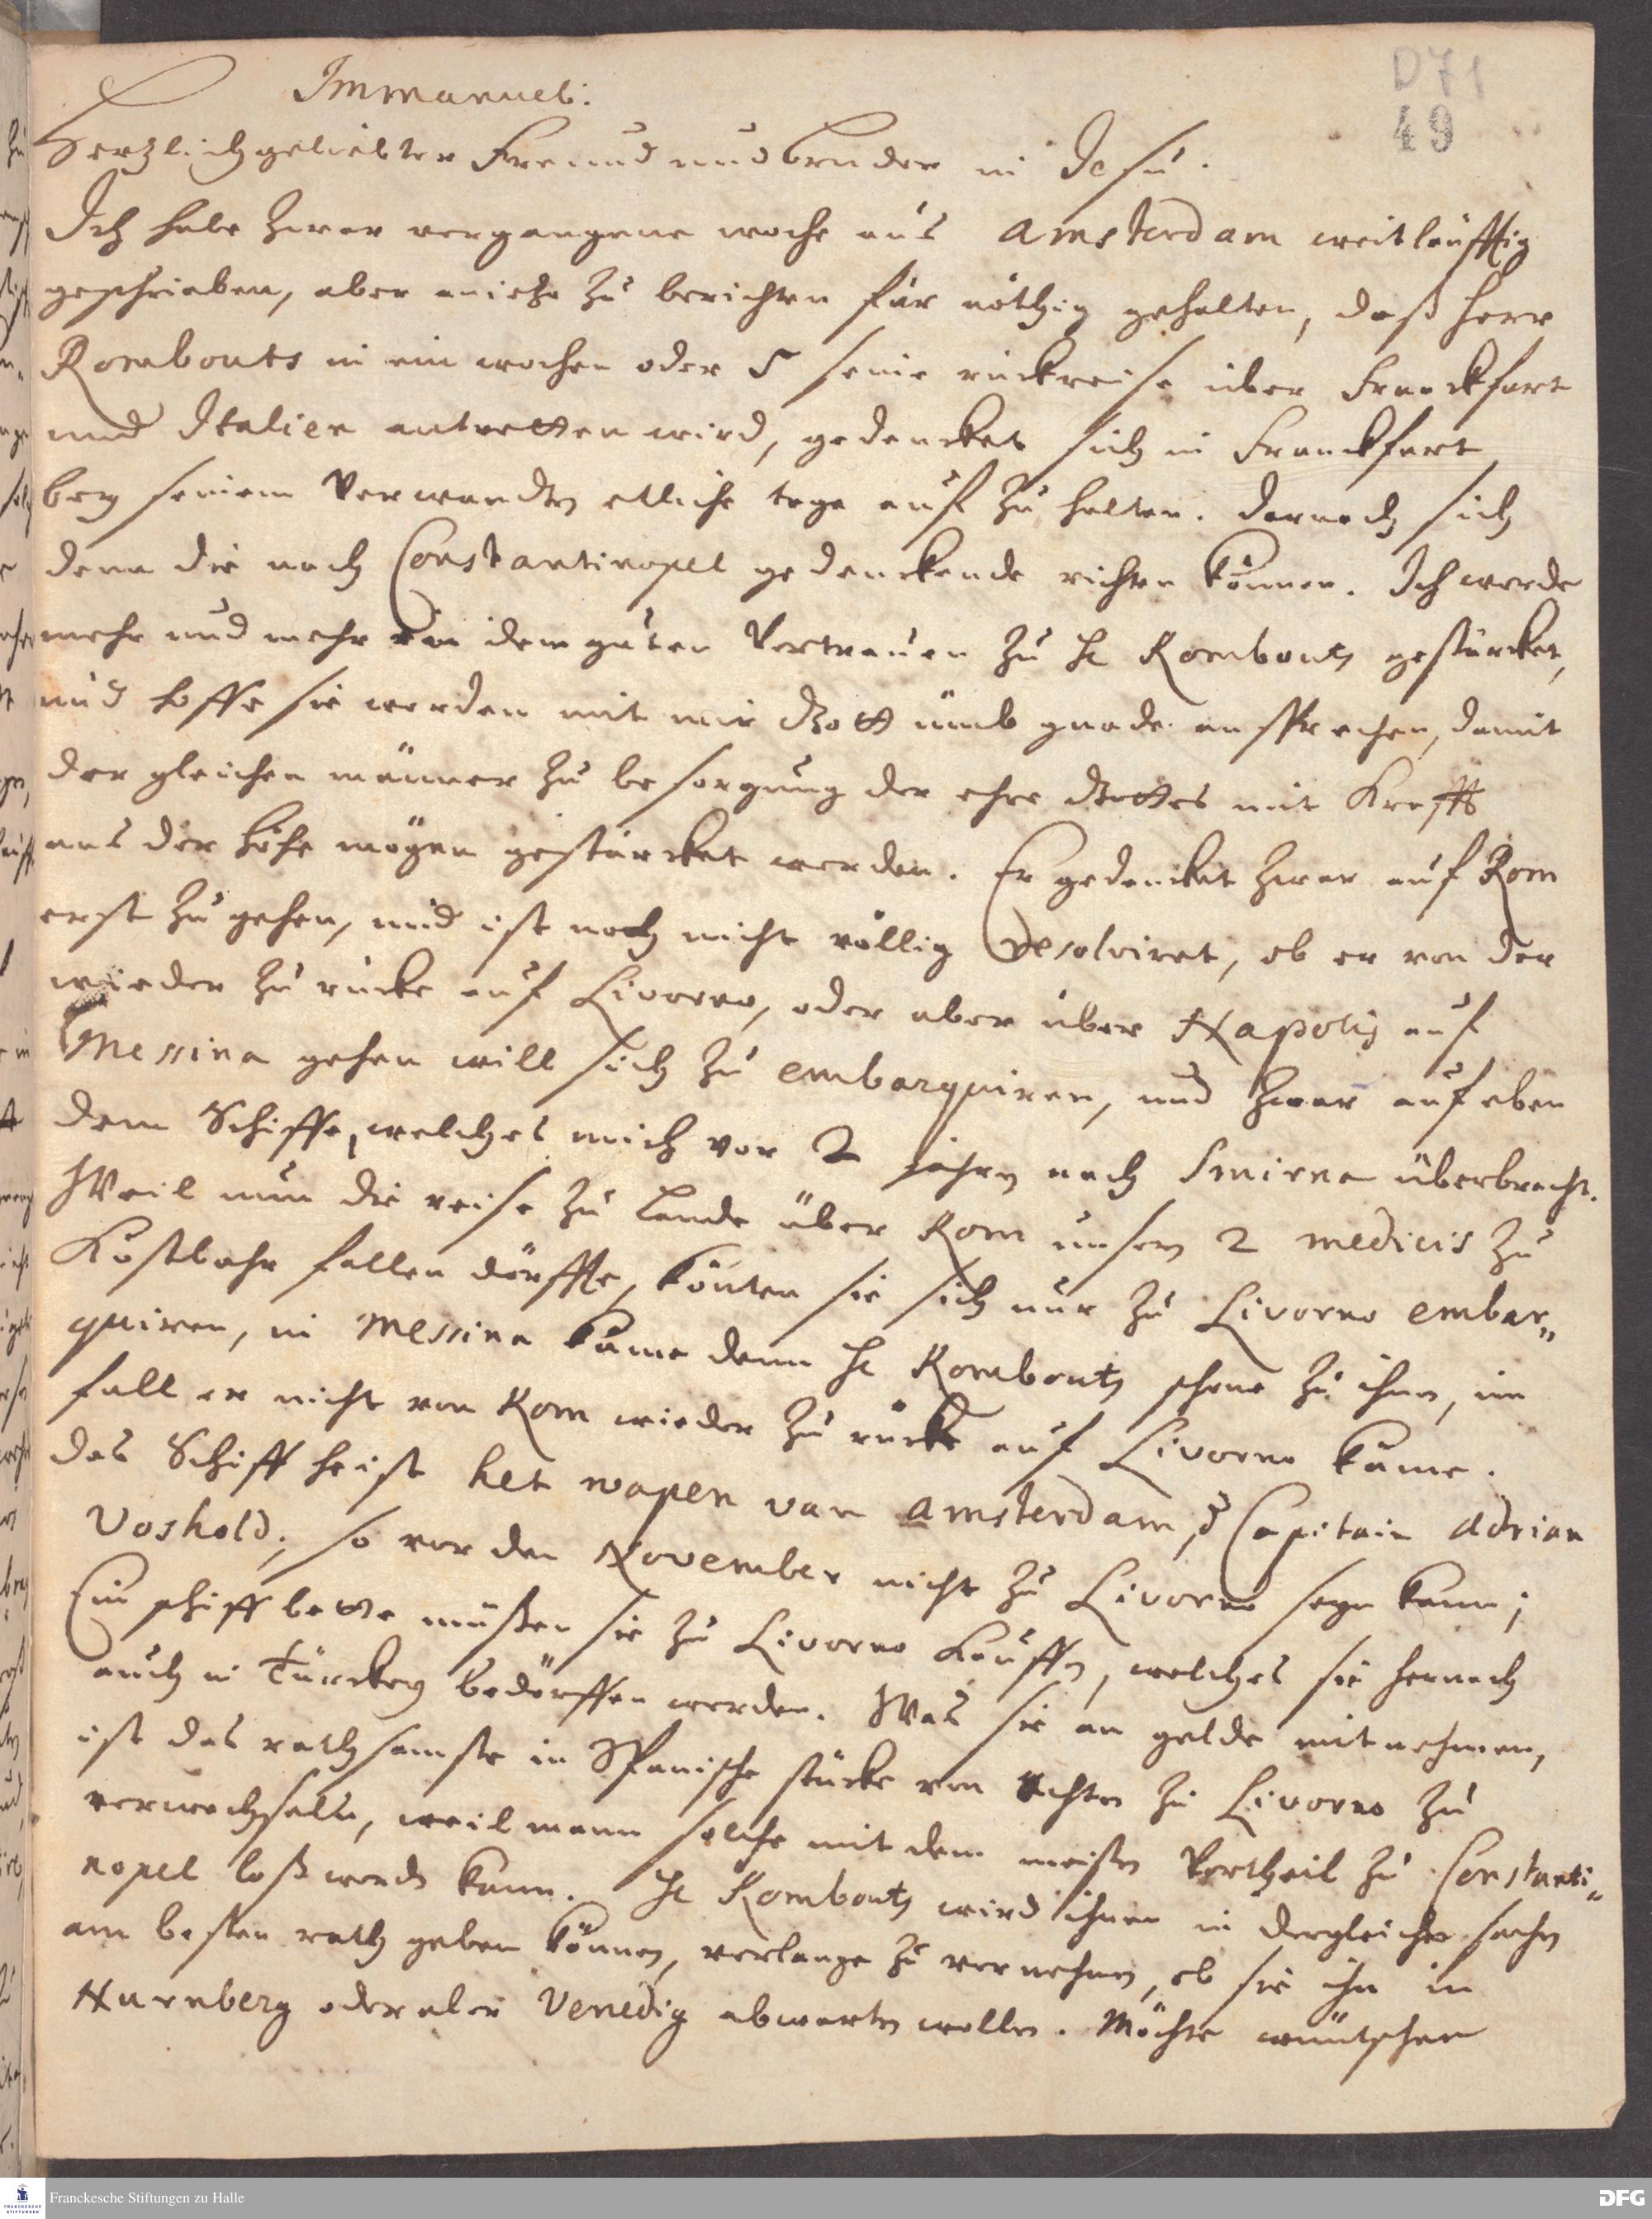 D71
49
Immanuel:
Hertzlich geliebter Freund und bruder in Jesu.
Ich habe zwar vergangene woche aus Amsterdam weitläufftig
geschrieben, aber anietzo zu berichten für nöthig gehalten, daß herr
Rombouts in ein wochen oder 5 seine rückreise über Franckfurt
und Italien antretten wird, gedencket sich in Franckfurt
bey seinem Verwandten etliche tage auf zu halten. darnach sich
denn die nach Constantinopel gedenckende richten können. Ich werde
mehr und mehr in dem guten Vertrauen zu H. Rombouts gestärcket,
und hoffe sie werden mit mir Gott umb gnade ansprechen, damit
der gleichen männer zu besorgung der ehre Gottes mit Krafft
aus der höhe mögen gestärcket werden. Er gedencket zwar auf Rom
erst zu gehen, und ist noch nicht völlig resolviret, ob er von dar
wieder zu rücke auf Livorno, oder aber über Napolis auf
Messina gehen will sich zu embarquiren, und zwar auf eben
dem Schiffe, welches mich vor 2 jahren nach Smirna überbracht.
Weil nun die reise zu Lande über Rom unsern 2 medicis zu
Kostbahr fallen dörffte, könten sie sich nur zu Livorno embar„
quiren, in Messina käme denn H. Rombouts schone zu ihnen, im
fall er nicht von Rom wieder zu rücke auf Livorno käme.
das Schiff heist het wapen van Amsterdam, d Capitain Adrian
Voshold, so vor den November nicht zu Livorno seyn kann;
Ein schiff bette müßen sie zu Livorno Kauffen, welches sie hernach
auch in Türckey bedörffen werden. Was sie an gelde mit nehmen,
ist das rathsamste in Spanische stücke von Achten zu Livorno zu
verwechseln, weil mann solche mit dem meisten Vortheil zu Constanti„
nopel loß werden kann. H. Rombouts wird ihnen in dergleichen sachen
am besten rath geben können, verlange zu vernehmen, ob sie ihn in
Nurnberg oder aber Venedig abwarten wollen. Möchte wüntschen
Franckesche Stiftungen zu Halle
FRANCKESCHE STIFTUNGEN
DFG